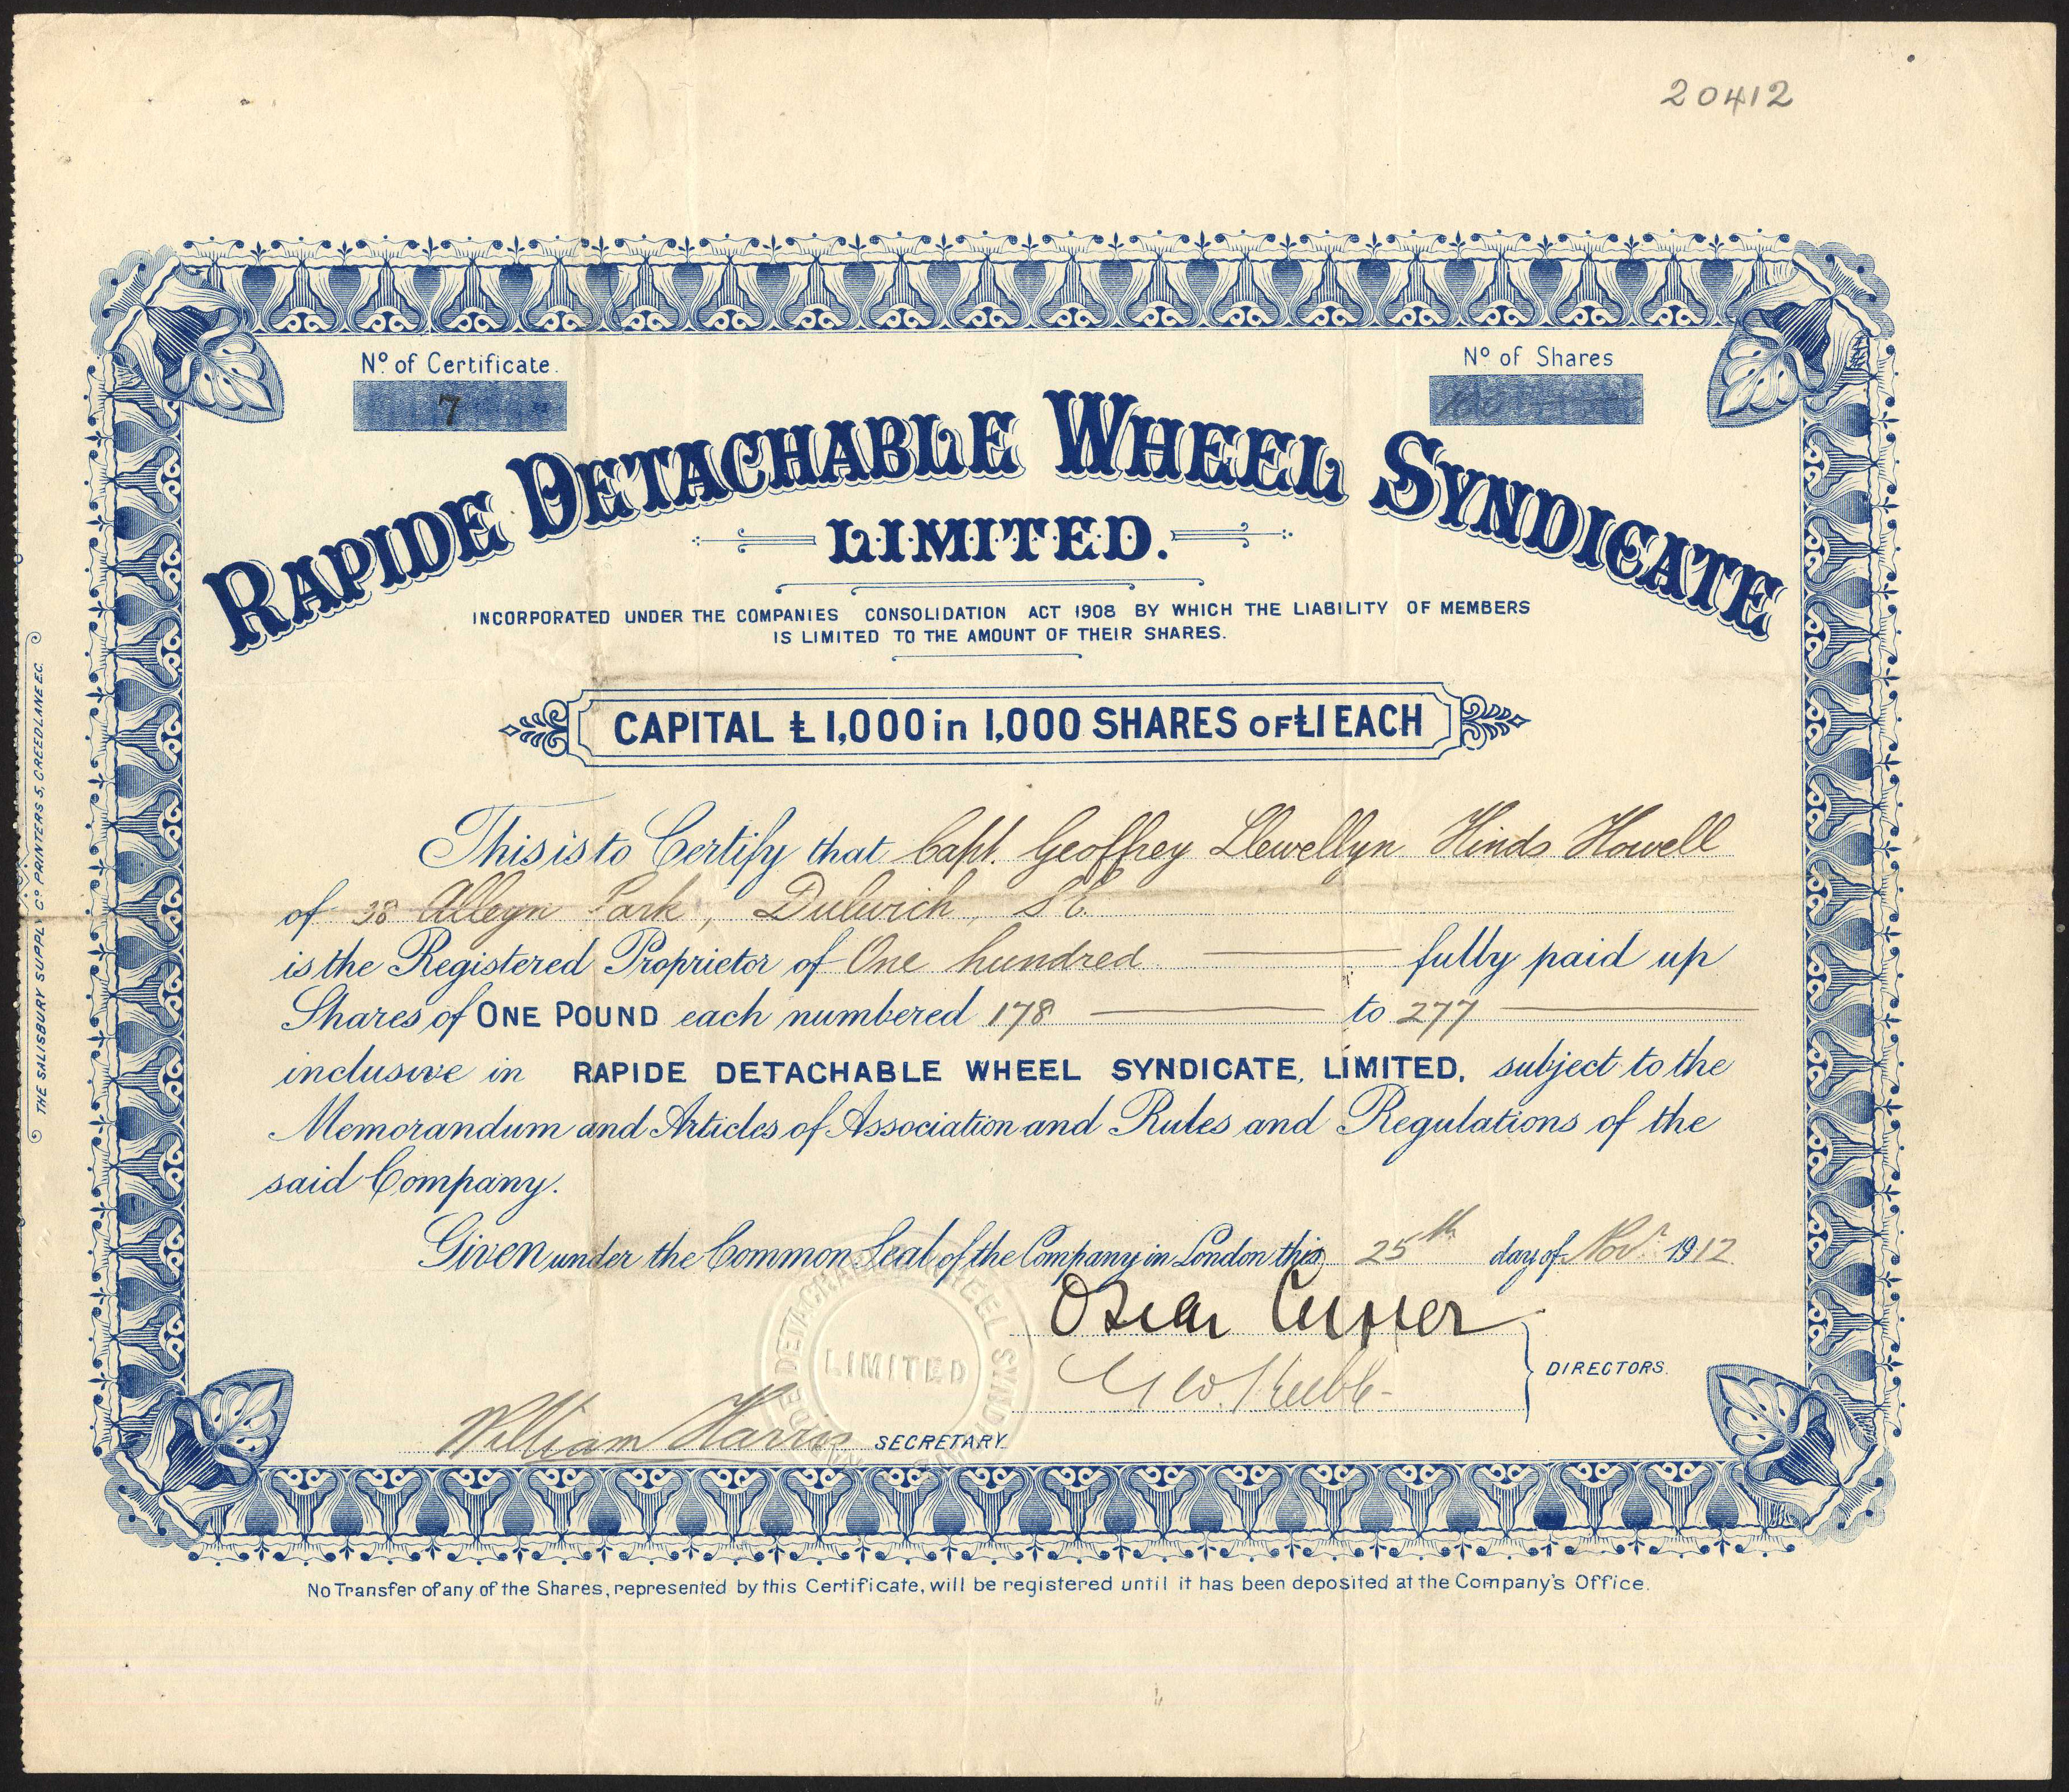 20412
Nº of Certificate.
7
Nº of Shares
100
RAPIDE DETACHABLE WHEEL SYNDICATE
LIMITED.
INCORPORATED UNDER THE COMPANIES CONSOLIDATION ACT 1908 BY WHICH THE LIABILITY OF MEMBERS
IS LIMITED TO THE AMOUNT OF THEIR SHARES.
CAPITAL £1,000 in 1,000 SHARES OF £1 EACH
This is to Certify that Capt. Geoffrey Llewellyn Hinds Howell
of 38 Alleyn Park, Dulwich, S.E.
is the Registered Proprietor of One hundred fully paid up
Shares of ONE POUND each numbered 178 to 277
inclusive in RAPIDE DETACHABLE WHEEL SYNDICATE, LIMITED, subject to the
Memorandum and Articles of Association and Rules and Regulations of the
said Company.
Given under the Common Seal of the Company in London this 25th day of Novr 1912.
Oscar
DIRECTORS.
RAPIDE DETACHABLE WHEEL SYNDICATE
LIMITED
William Harris SECRETARY.
No Transfer of any of the Shares, represented by this Certificate, will be registered until it has been deposited at the Company's Office.
THE SALISBURY SUPPLY Cº PRINTERS 5, CREEDLANE E.C.